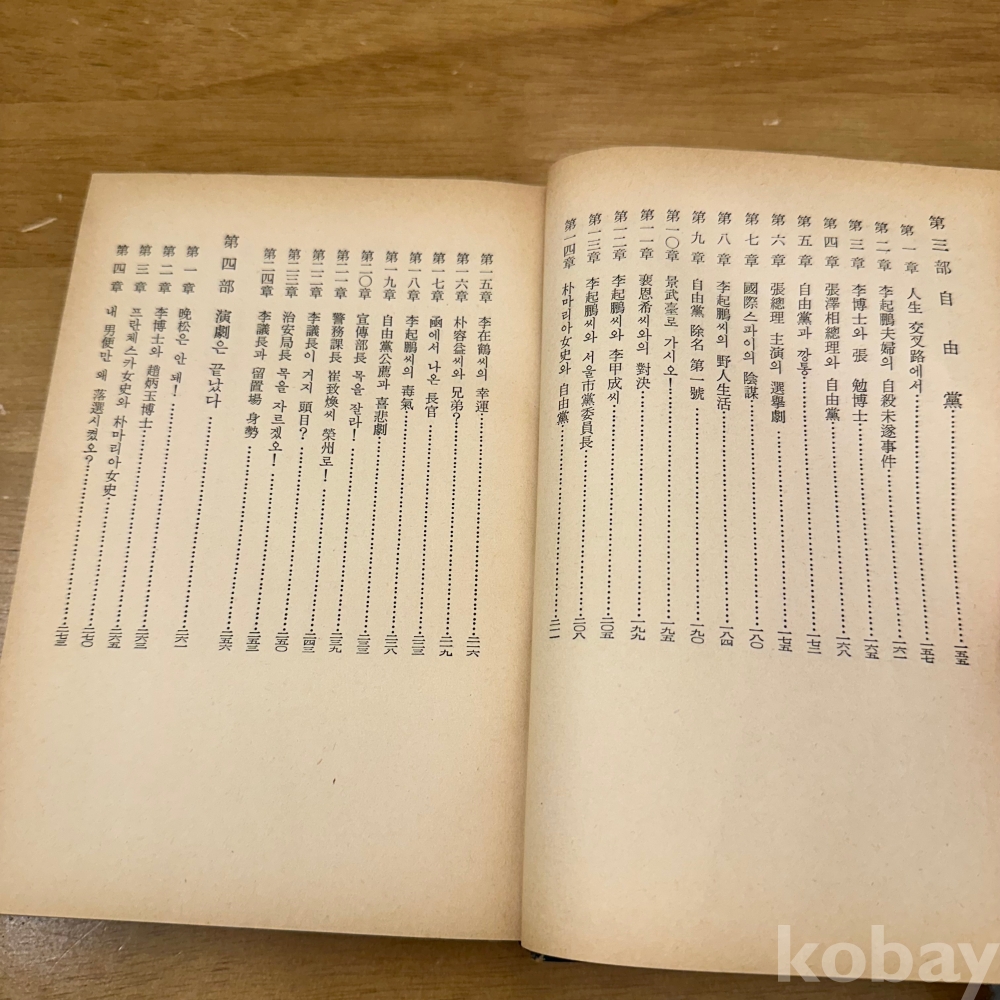 第三部 自由黨……一五五
第一章 人生 交叉路에서……一五七
第二章 李起鵬夫婦의 自殺未遂事件……一六一
第三章 李博士와 張 勉博士……一六五
第四章 張澤相總理와 自由黨……一六八
第五章 自由黨과 깡통……一七二
第六章 張總理 主演의 選擧劇……一七五
第七章 國際스파이의 陰謀……一八〇
第八章 李起鵬씨의 野人生活……一八四
第九章 自由黨 除名 第一號……一九〇
第一〇章 景武臺로 가시오!……一九五
第一一章 裵恩希씨와의 對決……一九九
第一二章 李起鵬씨와 李甲成씨……二〇五
第一三章 李起鵬씨와 서울市黨委員長……二〇八
第一四章 朴마리아女史와 自由黨……二一一
第一五章 李在鶴씨의 幸運……二一六
第一六章 朴容益씨와 兄弟?……二一九
第一七章 函에서 나온 長官……二二三
第一八章 李起鵬씨의 毒氣……二二六
第一九章 自由黨公薦과 喜悲劇……二三三
第二〇章 宣傳部長 목을 잘라!……二三九
第二一章 警務課長 崔致煥씨 榮州로!……二四三
第二二章 李議長이 거지 頭目?……二五〇
第二三章 治安局長 목을 자르겠오!……二五三
第二四章 李議長과 留置場 身勢
第四部 演劇은 끝났다……二五六
第一章 晩松은 안 돼!……二六一
第二章 李博士와 趙炳玉博士……二六三
第三章 프란체스카女史와 朴마리아女史……二六五
第四章 내 男便만 왜 落選시켰오?……二七〇
二七三
kobay